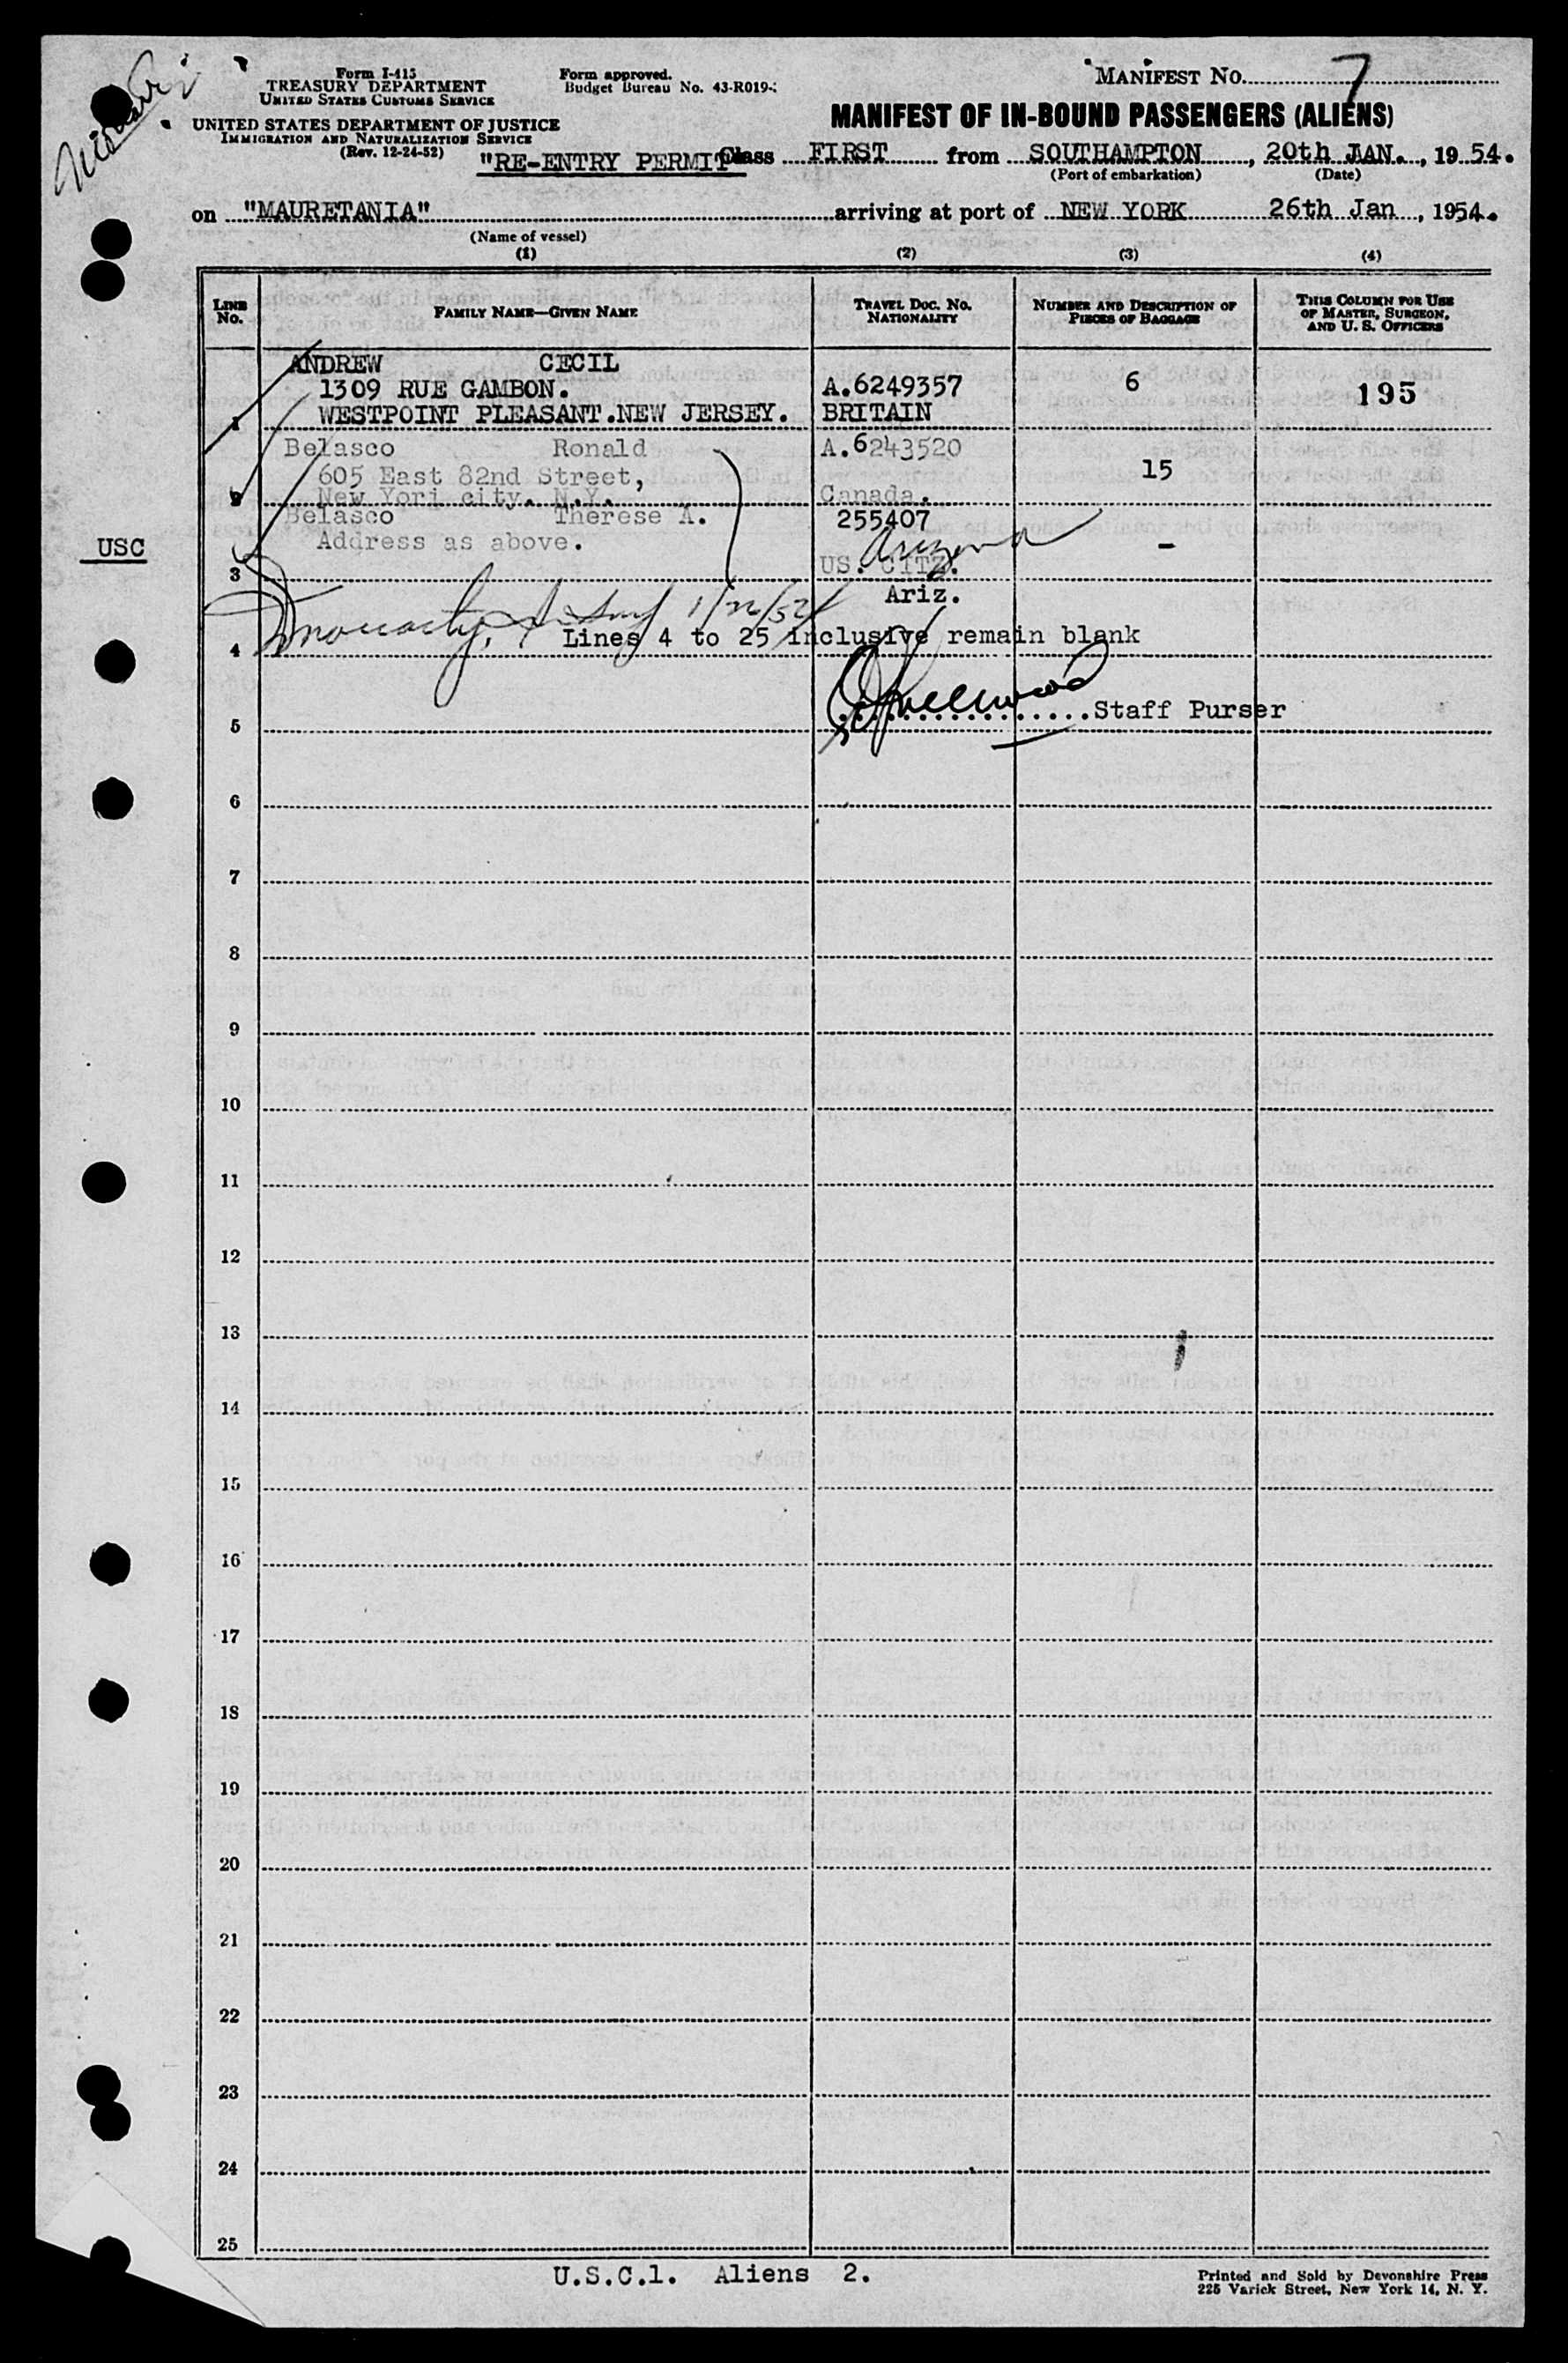 Form I-415
TREASURY DEPARTMENT
UNITED STATES CUSTOMS SERVICE
UNITED STATES DEPARTMENT OF JUSTICE
IMMIGRATION AND NATURALIZATION SERVICE
(Rev. 12-24-52)
Form approved.
Budget Bureau No. 43-R019-
MANIFEST NO. 7
MANIFEST OF IN-BOUND PASSENGERS (ALIENS)
"RE-ENTRY PERMIT" Class FIRST from SOUTHAMPTON, 20th JAN., 1954.
(Port of embarkation) (Date)
on "MAURETANIA" arriving at port of NEW YORK 26th Jan, 1954.
(Name of vessel)
(1) (2) (3) (4)
LINE NO. FAMILY NAME—GIVEN NAME TRAVEL DOC. NO. NATIONALITY NUMBER AND DESCRIPTION OF PIECES OF BAGGAGE THIS COLUMN FOR USE OF MASTER, SURGEON, AND U. S. OFFICERS
ANDREW CECIL
1309 RUE GAMBON. A.6249357 6 195
1 WESTPOINT PLEASANT.NEW JERSEY. BRITAIN
Belasco Ronald A.6243520
605 East 82nd Street, 15
2 New Yori city. N.Y. Canada.
Belasco Therese A. 255407
USC Address as above. Arizona -
3 US. CITZ.
Ariz.
1/26/54
4 Lines 4 to 25 inclusive remain blank
5 Staff Purser
6
7
8
9
10
11
12
13
14
15
16
17
18
19
20
21
22
23
24
25
U.S.C.1. Aliens 2.
Printed and Sold by Devonshire Press
225 Varick Street, New York 14, N. Y.